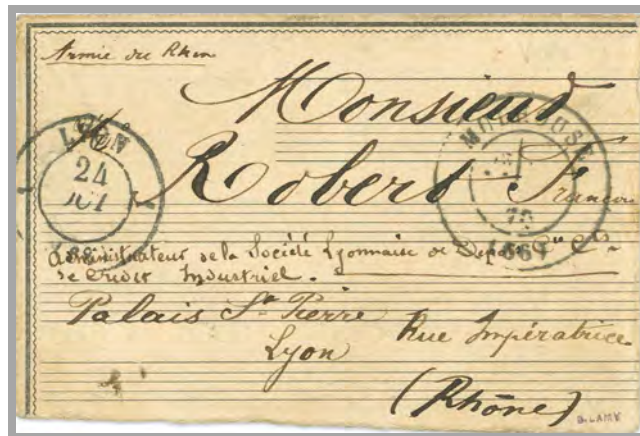 Armée du Rhin
Monsieur
Robert François
LYON
24
MULHOUSE
70
Administrateur de la Société Lyonnaise de Dépôts
de Crédit Industriel.
Palais St Pierre
Rue Impératrice
Lyon
(Rhône)
B. LAMY